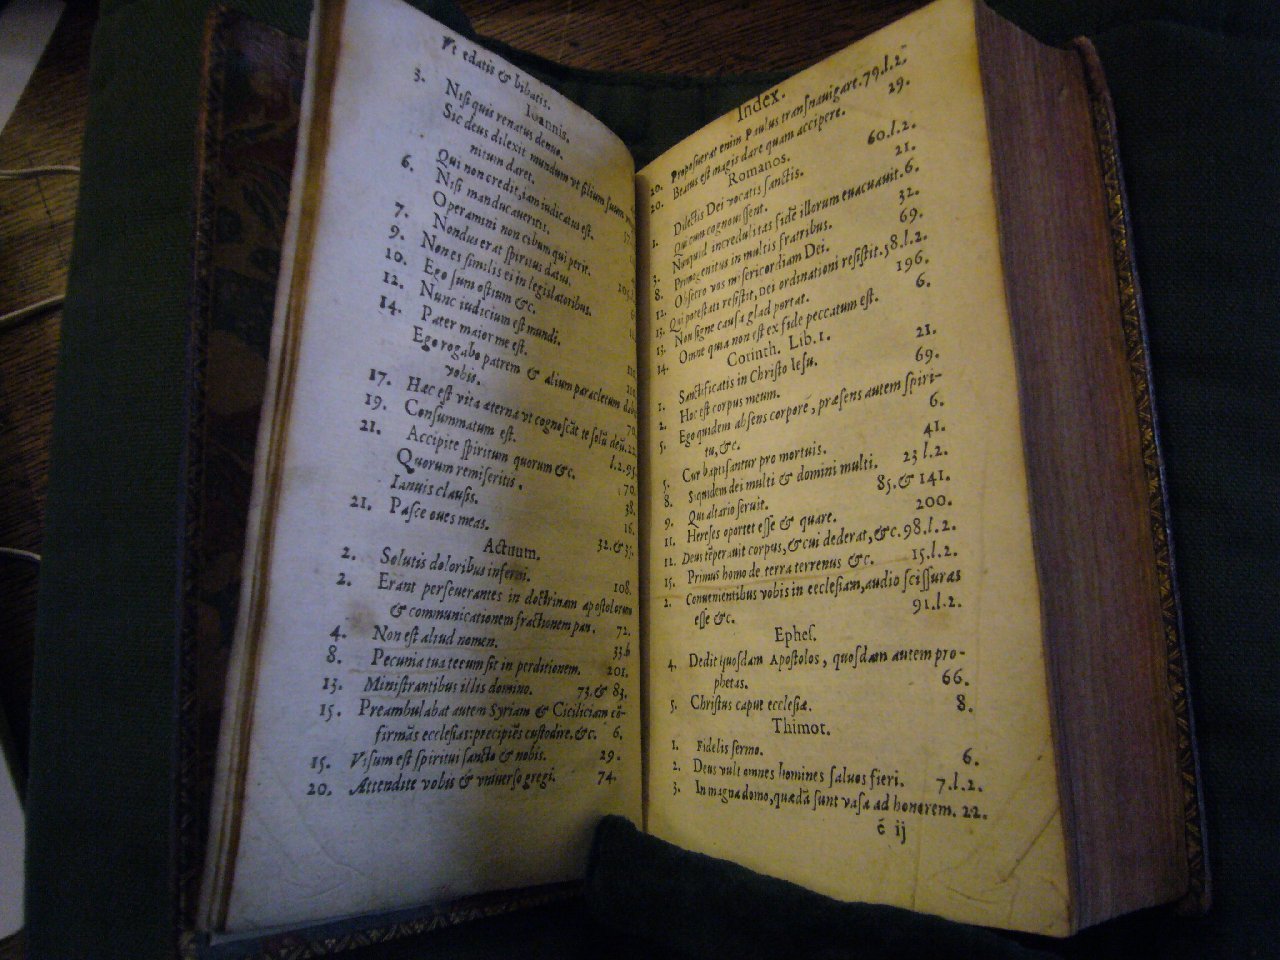 Vt edatis & bibatis.
Ioannis.
3. Nisi quis renatus denuo.
Sic deus dilexit mundum vt filium suum
nitum daret.
Qui non credit, iam iudicatus est.
6. Nisi manducaveritis.
Operamini non cibum qui perit.
7. Nondus erat spiritus datus.
9. Non es similis ei in legislatoribus.
10. Ego sum ostium &c.
12. Nunc iudicium est mundi.
14. Pater maior me est.
Ego rogabo patrem & alium paracletum dab
vobis. 70.
17. Hæc est vita æterna vt cognoscāt te solū deū. 22.
19. Consummatum est. l.2.95.
21. Accipite spiritum quorum &c. 70.
Quorum remiseritis. 38.
Ianuis clausis. 16.
21. Pasce oves meas. 32. & 35.
Actuum.
2. Solutis doloribus inferni. 108.
2. Erant perseuerantes in doctrinam apostolorum
& communicationem fractionem pan. 72.
4. Non est aliud nomen. 33.6
8. Pecunia tua tecum sit in perditionem. 201.
13. Ministrantibus illis domino. 73. & 83.
15. Preambulabat autem Syriam & Ciciliciam cō-
firmās ecclesias: precipiēs custodire. &c. 6.
15. Visum est spiritui sancto & nobis. 29.
20. Attendite vobis & vniuerso gregi. 74.
Index.
20. Proposuerat enim Paulus transnauigare. 79.l.2.
20. Beatius est magis dare quam accipere. 29.
Romanos.
1. Dilectis Dei vocatis sanctis. 60.l.2.
Qui cum cognouissent. 21.
3. Nunquid incredulitas fidē illorum euacuauit. 6.
8. Primogenitus in multis fratribus. 32.
12. Obsecro vos misericordiam Dei. 69.
13. Qui potestati resistit, Dei ordinationi resistit. 58.l.2.
13. Non signe causa glad portat. 196.
14. Omne quia non est ex fide peccatum est. 6.
Corinth. Lib. 1.
1. Sanctificatis in Christo Iesu. 21.
2. Hoc est corpus meum. 69.
5. Ego quidem absens corporé, præsens autem spiri-
tu, &c. 6.
5. Cur baptisantur pro mortuis. 41.
8. Siquidem dei multi & domini multi. 23 l.2.
9. Qui altario seruit. 85. & 141.
11. Hereses oportet esse & quare. 200.
12. Deus tēperauit corpus, & cui dederat, &c. 98.l.2.
15. Primus homo de terra terrenus &c. 15.l.2.
2. Conuenientibus vobis in ecclesiam, audio scissuras
esse &c. 91.l.2.
Ephes.
4. Dedit quosdam Apostolos, quosdam autem pro-
phetas. 66.
5. Christus caput ecclesiæ. 8.
Thimot.
1. Fidelis sermo. 6.
2. Deus vult omnes homines saluos fieri. 7.l.2.
3. In magna domo, quædā sunt vasa ad honorem. 22.
é ij